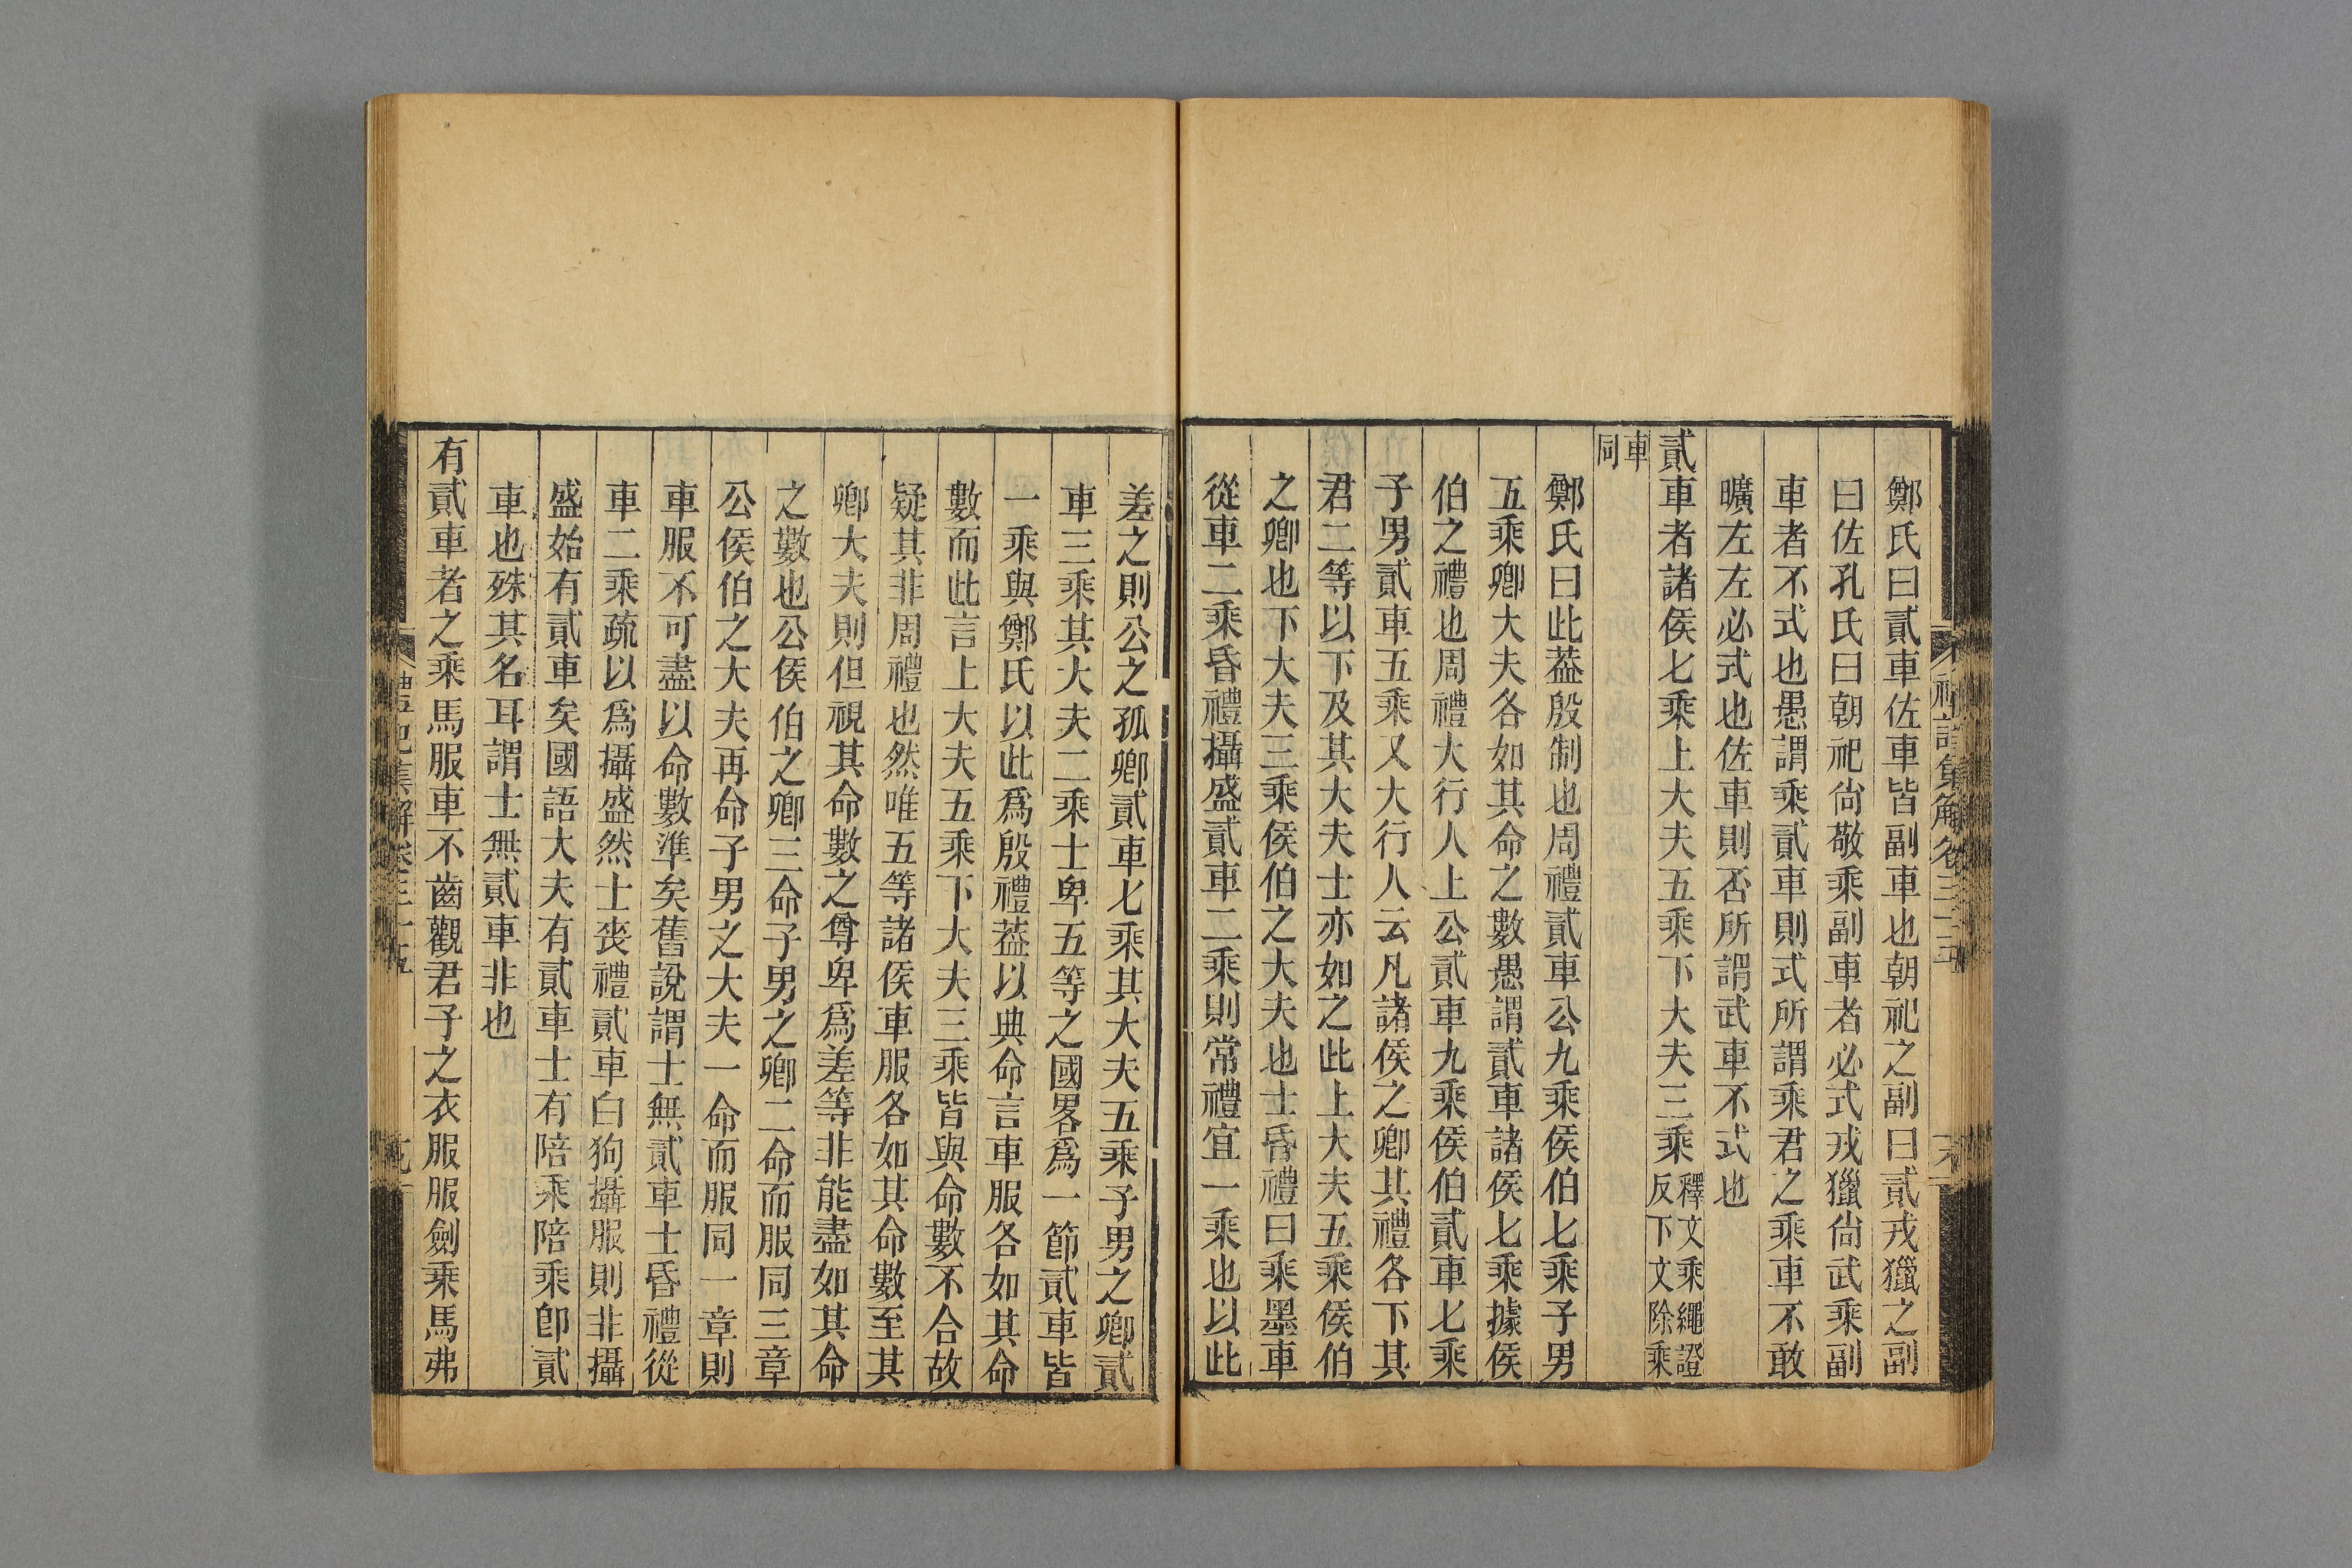 鄭氏曰貳車佐車皆副車也朝祀之副曰貳戎獵之副
曰佐孔氏曰朝祀尙敬乘副車者必式戎獵尙武乘副
車者不式也愚謂乘貳車則式所謂乘君之乘車不敢
曠左左必式也佐車則否所謂武車不式也
貳車者諸侯七乘上大夫五乘下大夫三乘釋文乘繩證反下文除乘
車同
鄭氏曰此葢殷制也周禮貳車公九乘侯伯七乘子男
五乘卿大夫各如其命之數愚謂貳車諸侯七乘據侯
伯之禮也周禮大行人上公貳車九乘侯伯貳車七乘
子男貳車五乘又大行人云凡諸侯之卿其禮各下其
君二等以下及其大夫士亦如之此上大夫五乘侯伯
之卿也下大夫三乘侯伯之大夫也士昏禮曰乘墨車
從車二乘昏禮攝盛貳車二乘則常禮宜一乘也以此
差之則公之孤卿貳車七乘其大夫五乘子男之卿貳
車三乘其大夫二乘士卑五等之國畧爲一節貳車皆
一乘與鄭氏以此爲殷禮葢以典命言車服各如其命
數而此言上大夫五乘下大夫三乘皆與命數不合故
疑其非周禮也然唯五等諸侯車服各如其命數至其
卿大夫則但視其命數之尊卑爲差等非能盡如其命
之數也公侯伯之卿三命子男之卿二命而服同三章
公侯伯之大夫再命子男之大夫一命而服同一章則
車服不可盡以命數準矣舊說謂士無貳車士昏禮從
車二乘疏以爲攝盛然士喪禮貳車白狗攝服則非攝
盛始有貳車矣國語大夫有貳車士有陪乘陪乘卽貳
車也殊其名耳謂士無貳車非也
有貳車者之乘馬服車不齒觀君子之衣服服劍乘馬弗
禮記集解卷三十五